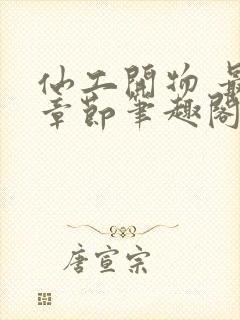 仙工開物 最
章節筆趣閣
唐宣宗